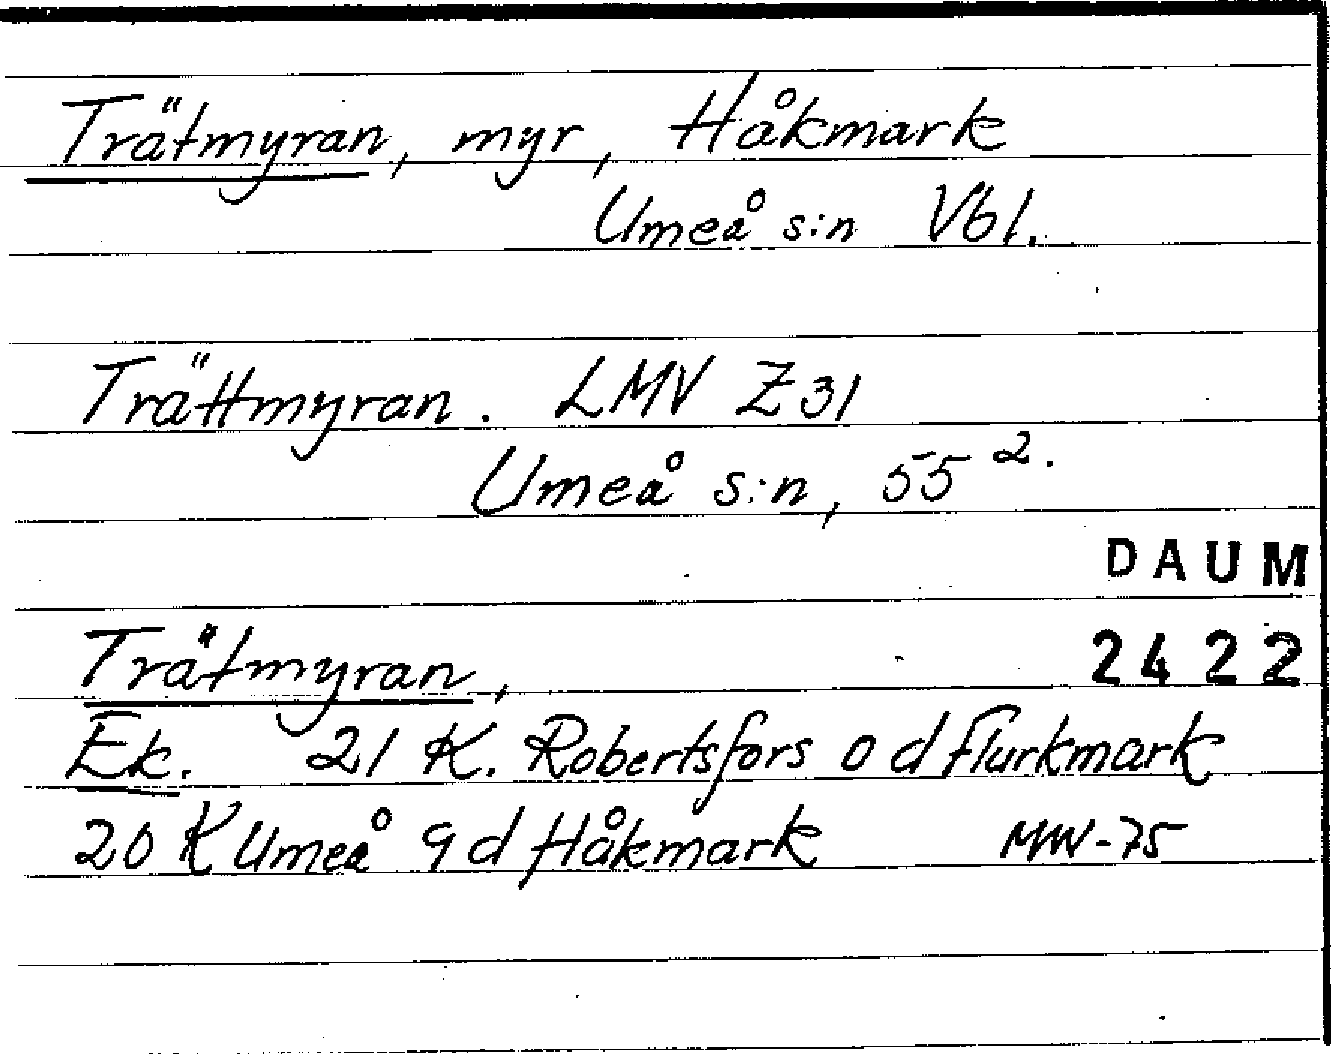 Trätmyran, myr, Håkmark
Umeå s:n Vbl.
Trättmyran. LMV Z31
Umeå s:n, 55².
DAUM
2422
Trätmyran,
Ek. 21 K. Robertsfors 0 d Flurkmark
20 K Umeå 9 d Håkmark MW-75